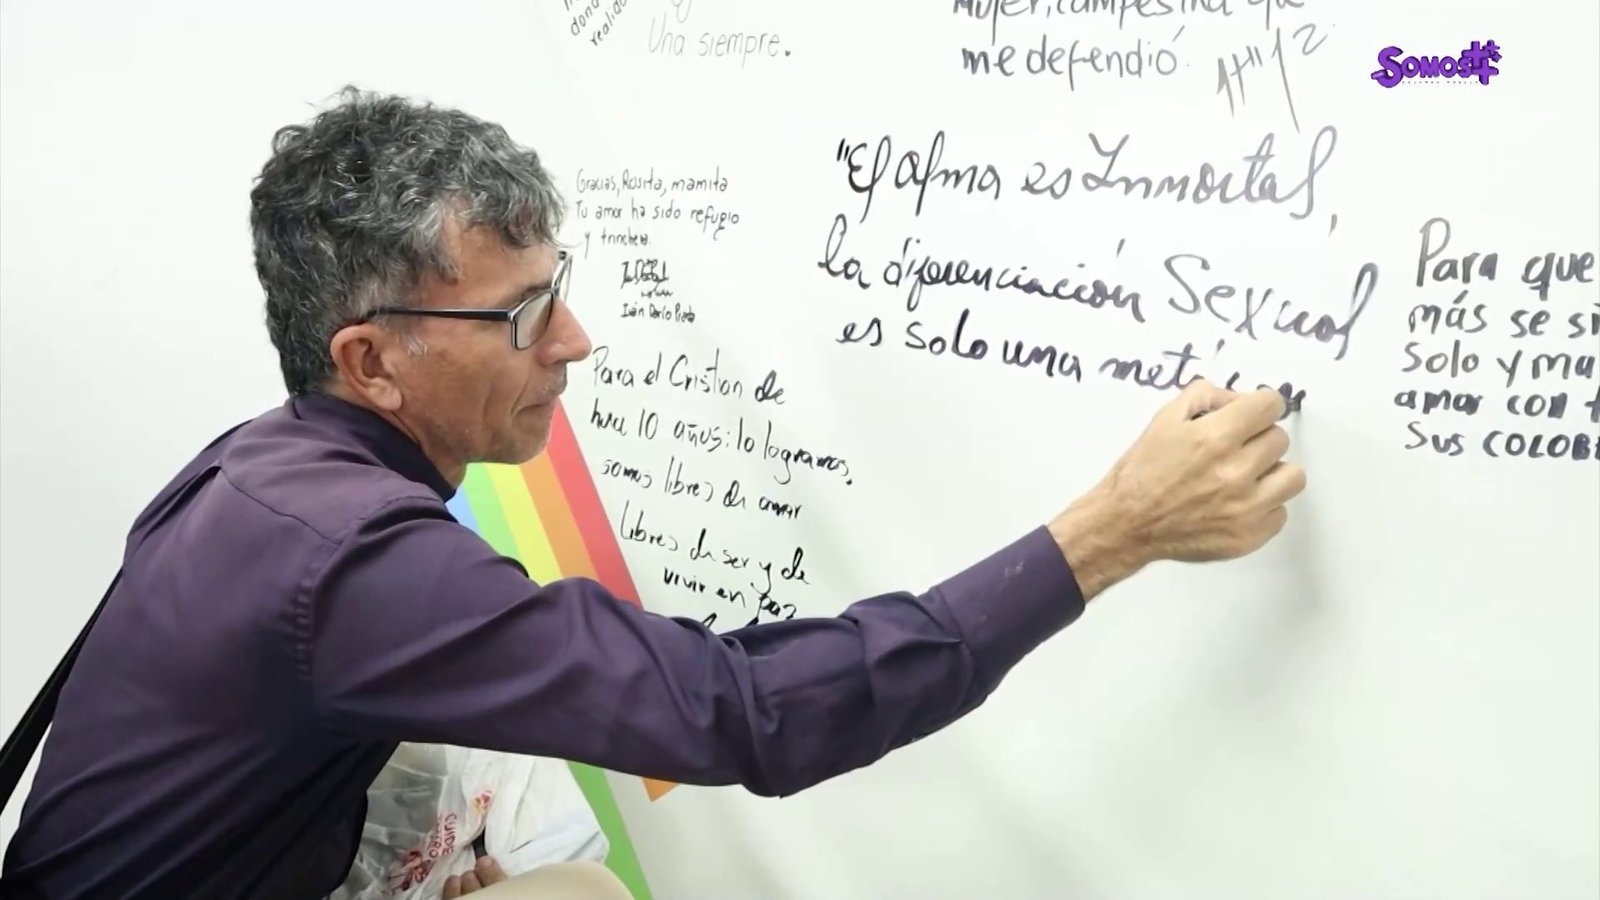 dond
realida
Una siempre.
me defendió
SOMOS
Gracias, Rosita, mamita
Tu amor ha sido refugio
y trinchera.
Iván Darío
Para el Cristian de
hace 10 años: lo logramos,
somos libres de amar
libres de ser y de
vivir en paz
"El alma es Inmortal,
la diferenciación Sexual
es solo una
Para que
más se si
solo y ma
amar con t
sus COLOR
CUIDE